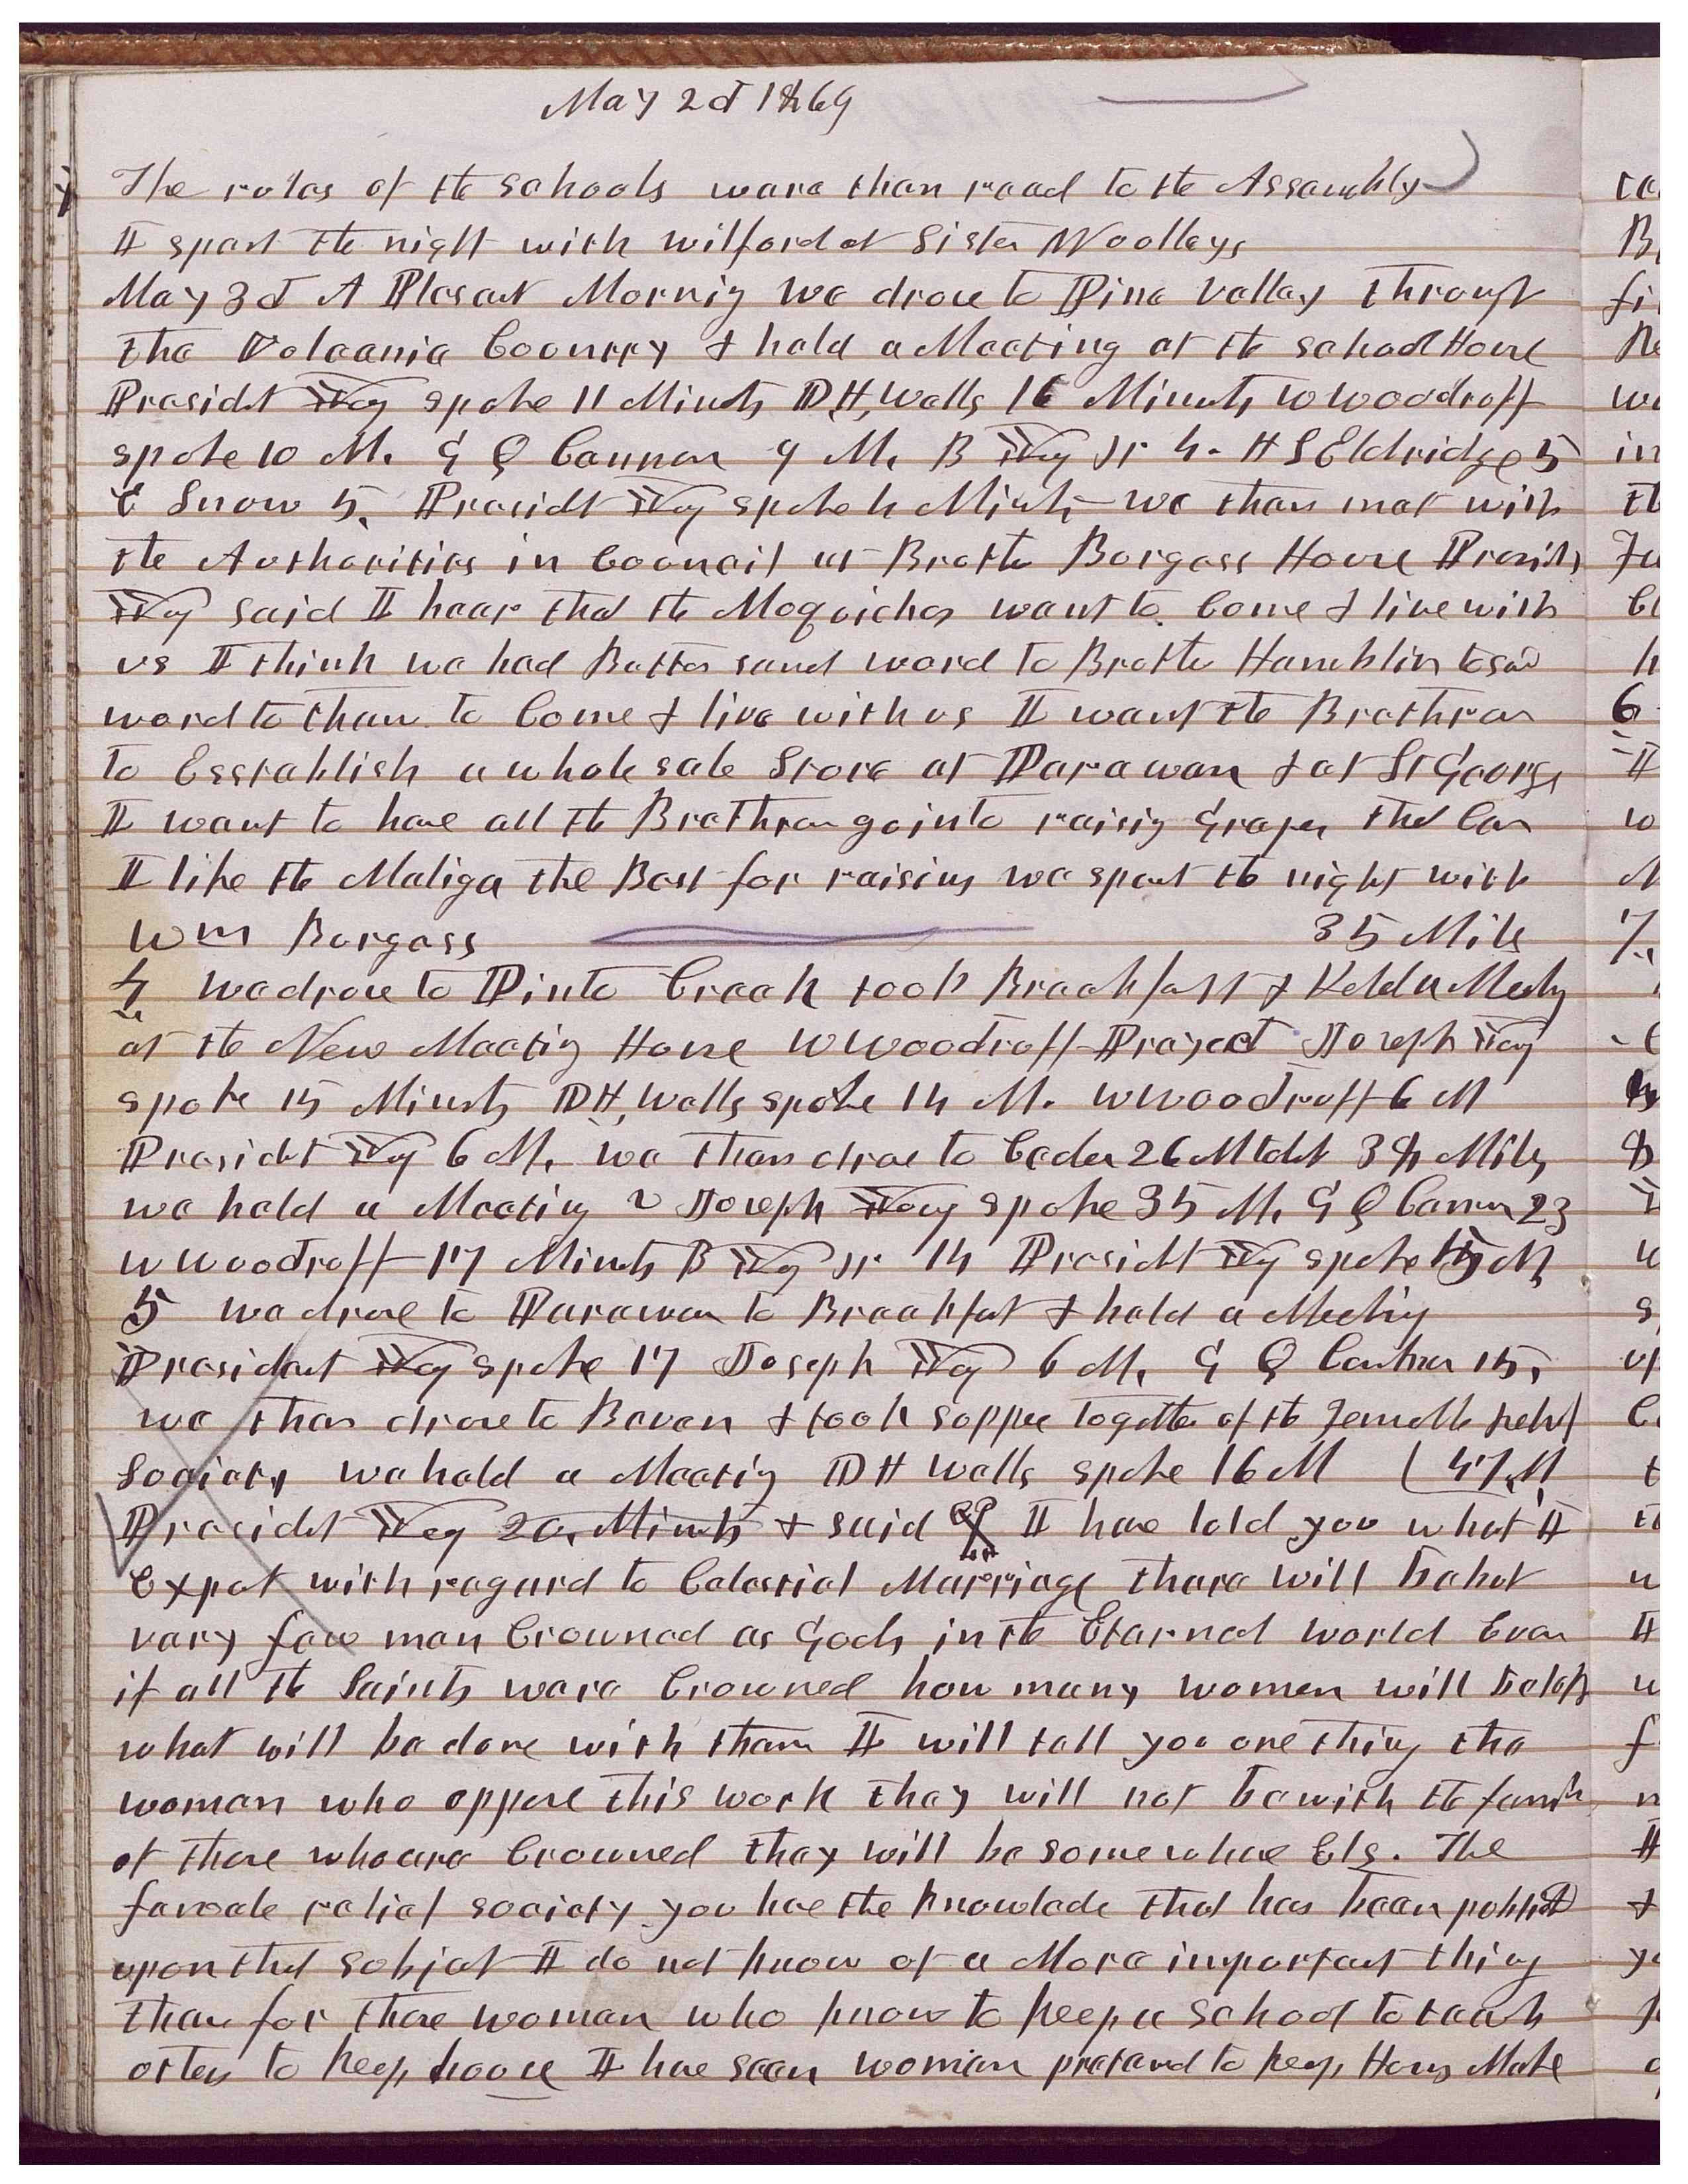 May 2d 1869
The rules of the schools ware then read to the Assembly
I spent the night with Wilford at Sister Woolleys
May 3d A Plesant Mornig we drove to Pine valley through
the Volcanic Country & held a Meeting at the school House
Presidet Young spoke 11 Minuts D, H, Wells 16 Minuts W Woodruff
spoke 10 M. G Q Cannon 9 M. B Young jr 4. H S Eldridge 5
E Snow 5. Presidt Young spoke 4 Minuts we then met with
the Authorities in Council at Brother Burgess House Presidt
Young said I hear that the Moquiches want to Come & live with
us I think we had Better send word to Brother Hamblin to send
word to them to Come & live with us I want the Brethren
to Esstablish a whole sale Store at Parawan & at St George
I want to have all the Brethren go into raisig Grapes that Can
I like the Maliga the Best for raisins we spent the night with
Wm Burgess 35 Mile
4 we drove to Pinto Creek took Breakfast & Held a Meeting
at the New Meetig House W Woodruff Prayed Joseph Young
spoke 15 Minuts D H, Wells spoke 14 M. W Woodruff 6 M
Presidet Young 6 M. we then drove to Ceder 26 M 38 Miles
we held a Meeting Joseph Young spoke 35 M. G Q Cannon 23
W Woodruff 17 Minuts B Young jr 14 Presidt Young spoke 15 M
5 we drove to Parawan to Breakfast & held a Meetig
President Young spoke 17 Joseph Young 6 M. G Q Cannon 15,
we then drove to Bever & took supper together of the Female relief
Society we held a Meetig D H Wells spoke 16 M (47, M
Presidet Young 20, Minuts & said I have told you what I
Expet with regard to Celestial Marriage there will be but
vary few men Crowned as Gods in the Eternal world Even
if all the Saints were Crowned how many women will be left
what will be done with them I will tell you one thing the
women who oppose this work they will not be with the family
of those who are Crowned they will be some whare Els. The
female relief society you have the knowlede that has been published
upon that subjet I do not know of a More important thing
than for those women who know to keep a school to teach
others to keep house I have seen women pretend to keep House Make